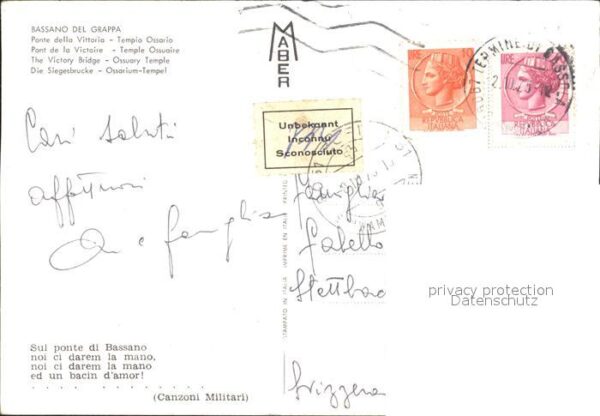 BASSANO DEL GRAPPA
Ponte della Vittoria - Tempio Ossario
Pont de la Victoire - Temple Ossuaire
The Victory Bridge - Ossuary Temple
Die Siegesbrucke - Ossarium-Tempel
MABER
LIRE
LIRE
REPUBBLICA
ITALIANA
REPUBBLICA
ITALIANA
Unbekannt
Inconnu
Sconosciuto
Cari saluti
affettuosi
e famiglia
Famiglia
Svizzera
STAMPATO IN ITALIA IMPRIME EN ITALIE PRINTED
privacy protection
Datenschutz
Sul ponte di Bassano
noi ci darem la mano,
noi ci darem la mano
ed un bacin d'amor!
. . . . . . . . . . . . . . .
(Canzoni Militari)